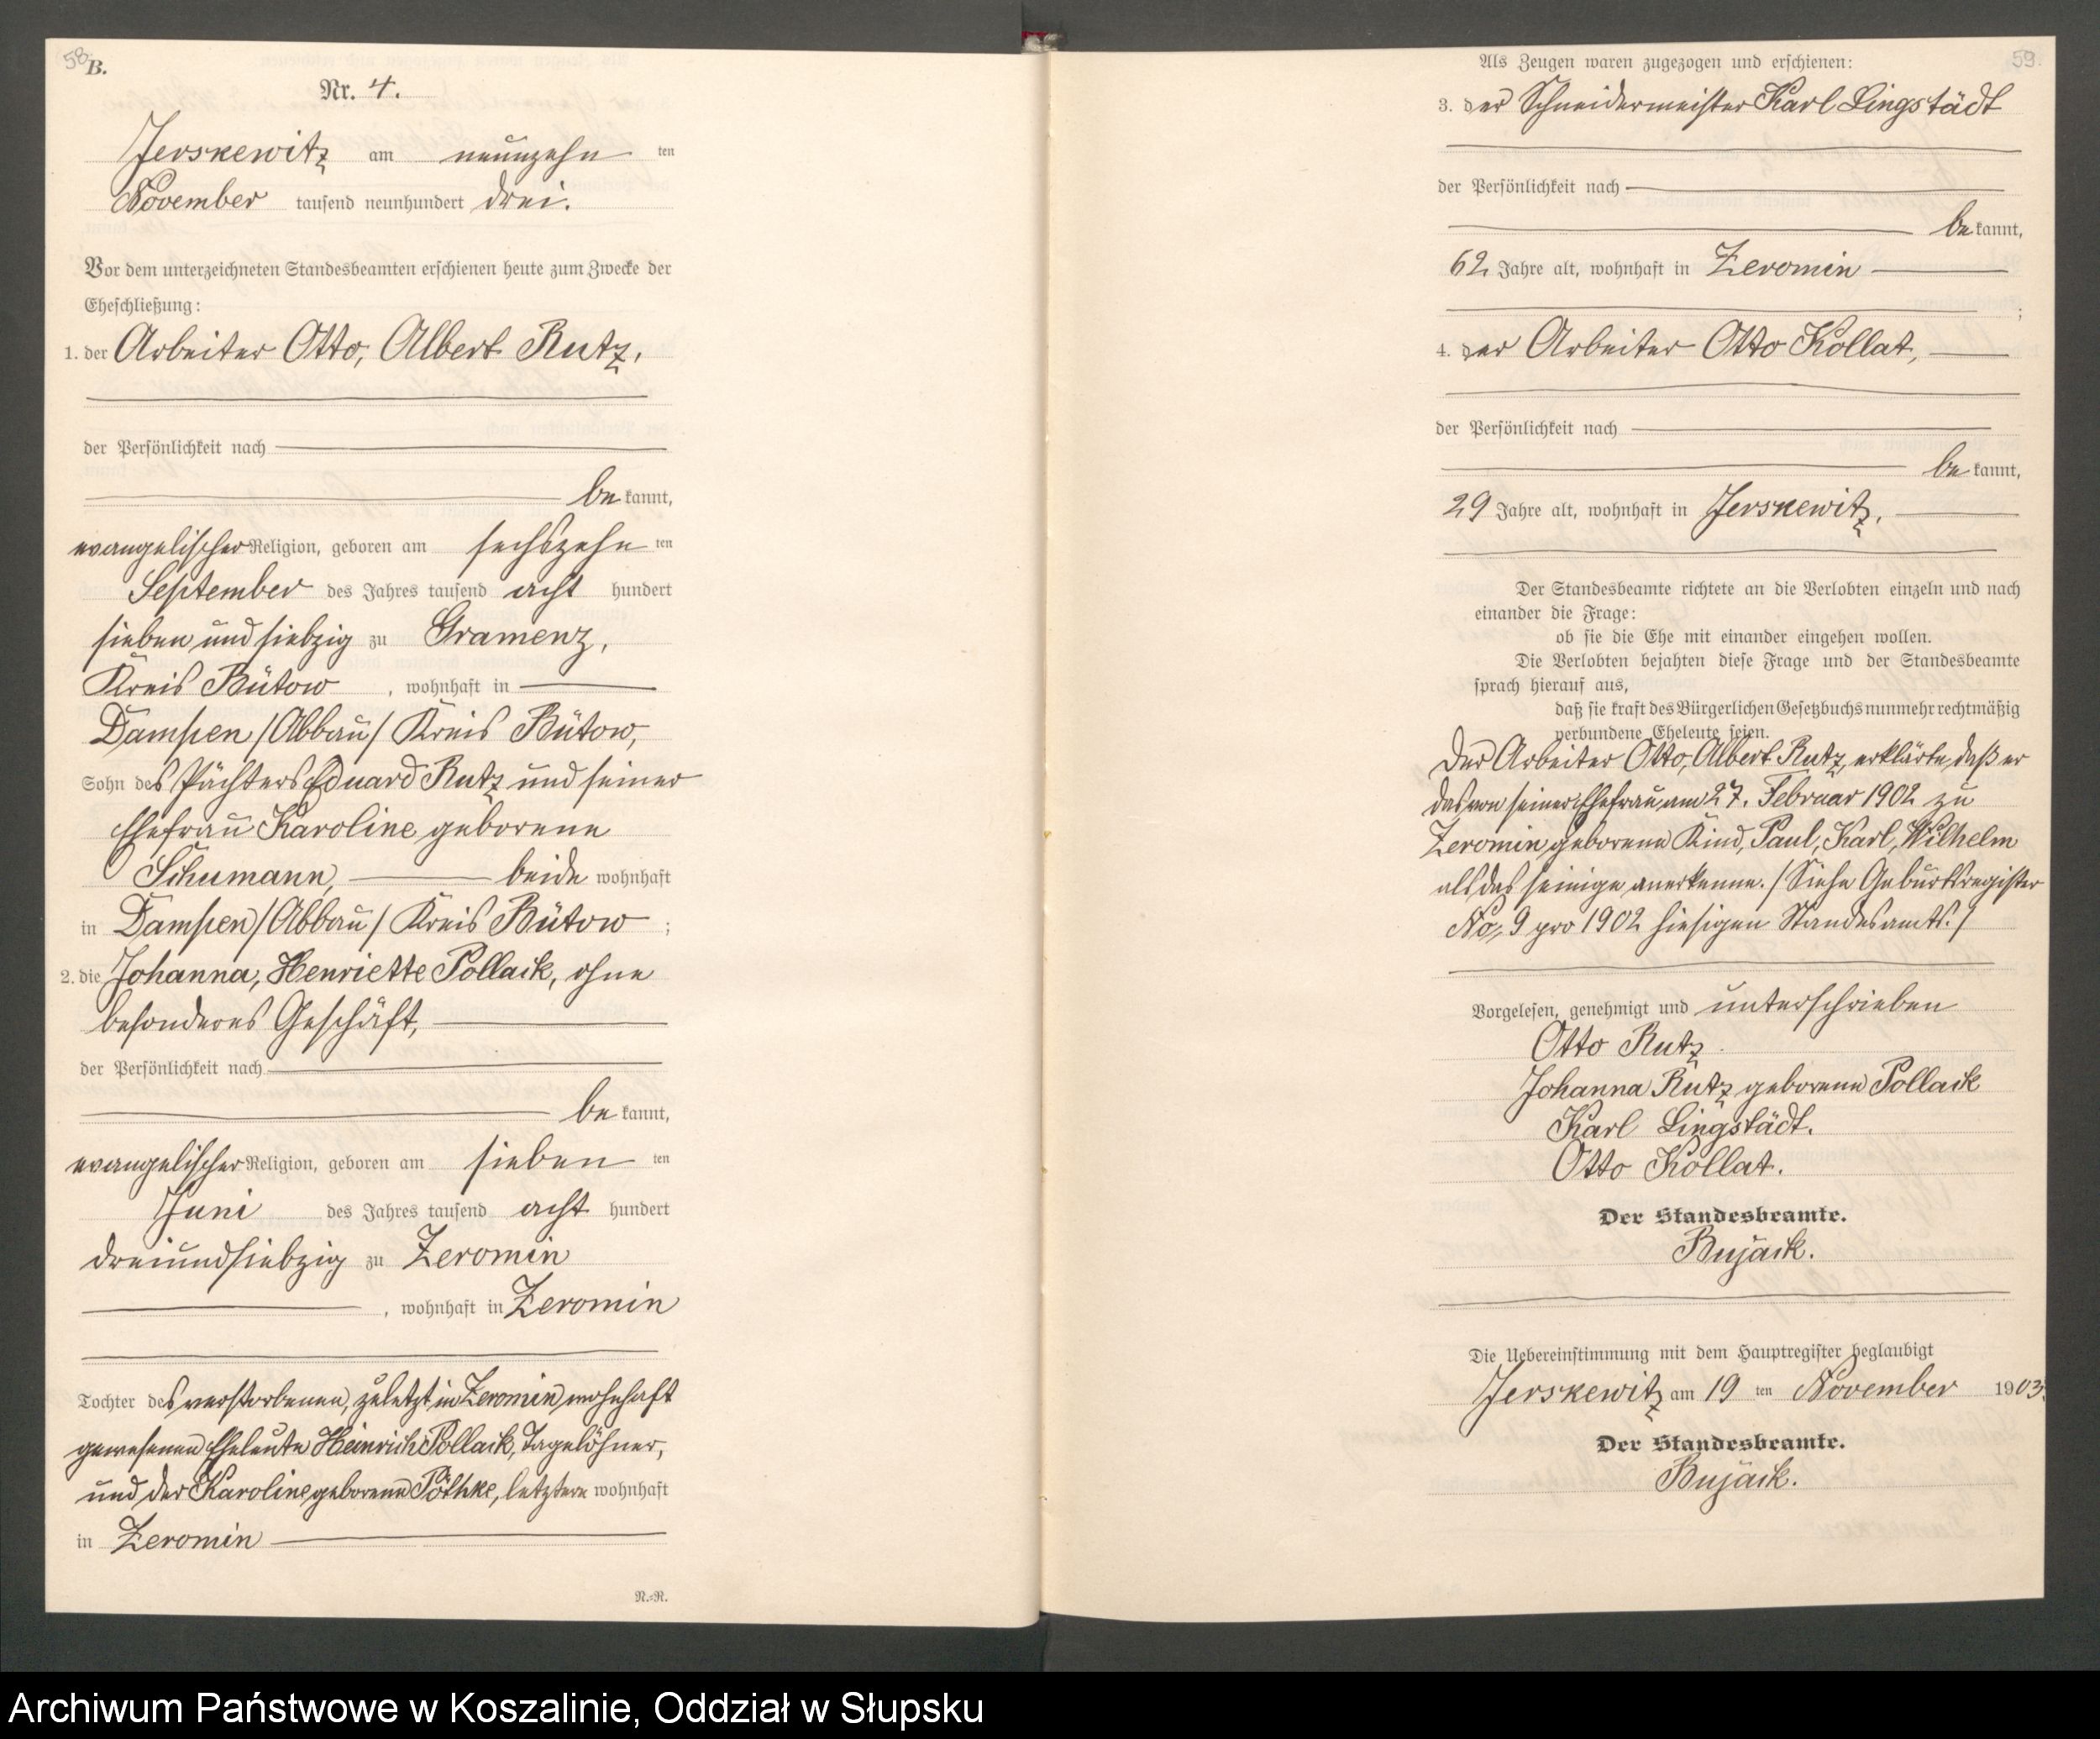 58
B.
Nr. 4.
Jerskewitz am neunzehn ten
November tausend neunhundert drei.
Vor dem unterzeichneten Standesbeamten erschienen heute zum Zwecke der
Eheschließung:
1. der Arbeiter Otto, Albert Rutz,
der Persönlichkeit nach
be kannt,
evangelischer Religion, geboren am sechszehn ten
September des Jahres tausend acht hundert
sieben und siebzig zu Gramenz,
Kreis Bütow, wohnhaft in
Dampen /Abbau/ Kreis Bütow,
Sohn des Pächters Eduard Rutz und seiner
Ehefrau Karoline geborene
Schumann, beide wohnhaft
in Dampen /Abbau/ Kreis Bütow ;
2. die Johanna, Henriette Pollack, ohne
besonderes Geschäft,
der Persönlichkeit nach
be kannt,
evangelischer Religion, geboren am sieben ten
Juni des Jahres tausend acht hundert
dreiundsiebzig zu Zeromin
, wohnhaft in Zeromin
Tochter des verstorbenen, zuletzt in Zeromin wohnhaft
gewesenen Eheleute Heinrich Pollack, Tagelöhner,
und der Karoline geborene Pöthke, letztere wohnhaft
in Zeromin
N.=R.
59.
Als Zeugen waren zugezogen und erschienen:
3. der Schneidermeister Karl Lingstädt
der Persönlichkeit nach
be kannt,
62 Jahre alt, wohnhaft in Zeromin
;
4. der Arbeiter Otto Kollat,
der Persönlichkeit nach
be kannt,
29 Jahre alt, wohnhaft in Jerskewitz.
Der Standesbeamte richtete an die Verlobten einzeln und nach
einander die Frage:
ob sie die Ehe mit einander eingehen wollen.
Die Verlobten bejahten diese Frage und der Standesbeamte
sprach hierauf aus,
daß sie kraft des Bürgerlichen Gesetzbuchs nunmehr rechtmäßig
verbundene Eheleute seien.
Der Arbeiter Otto, Albert Rutz, erklärte, daß er
das von seiner Ehefrau, am 27. Februar 1902 zu
Zeromin geborene Kind, Paul, Karl, Wilhelm
als das seinige anerkenne. /Siehe Geburtsregister
No. 9 pro 1902 hiesigen Standesamts./
Vorgelesen, genehmigt und unterschrieben
Otto Rutz.
Johanna Rutz geborene Pollack
Karl Lingstädt.
Otto Kollat.
Der Standesbeamte.
Bujack.
Die Uebereinstimmung mit dem Hauptregister beglaubigt
Jerskewitz am 19 ten November 1903.
Der Standesbeamte.
Bujack.
Archiwum Państwowe w Koszalinie, Oddział w Słupsku